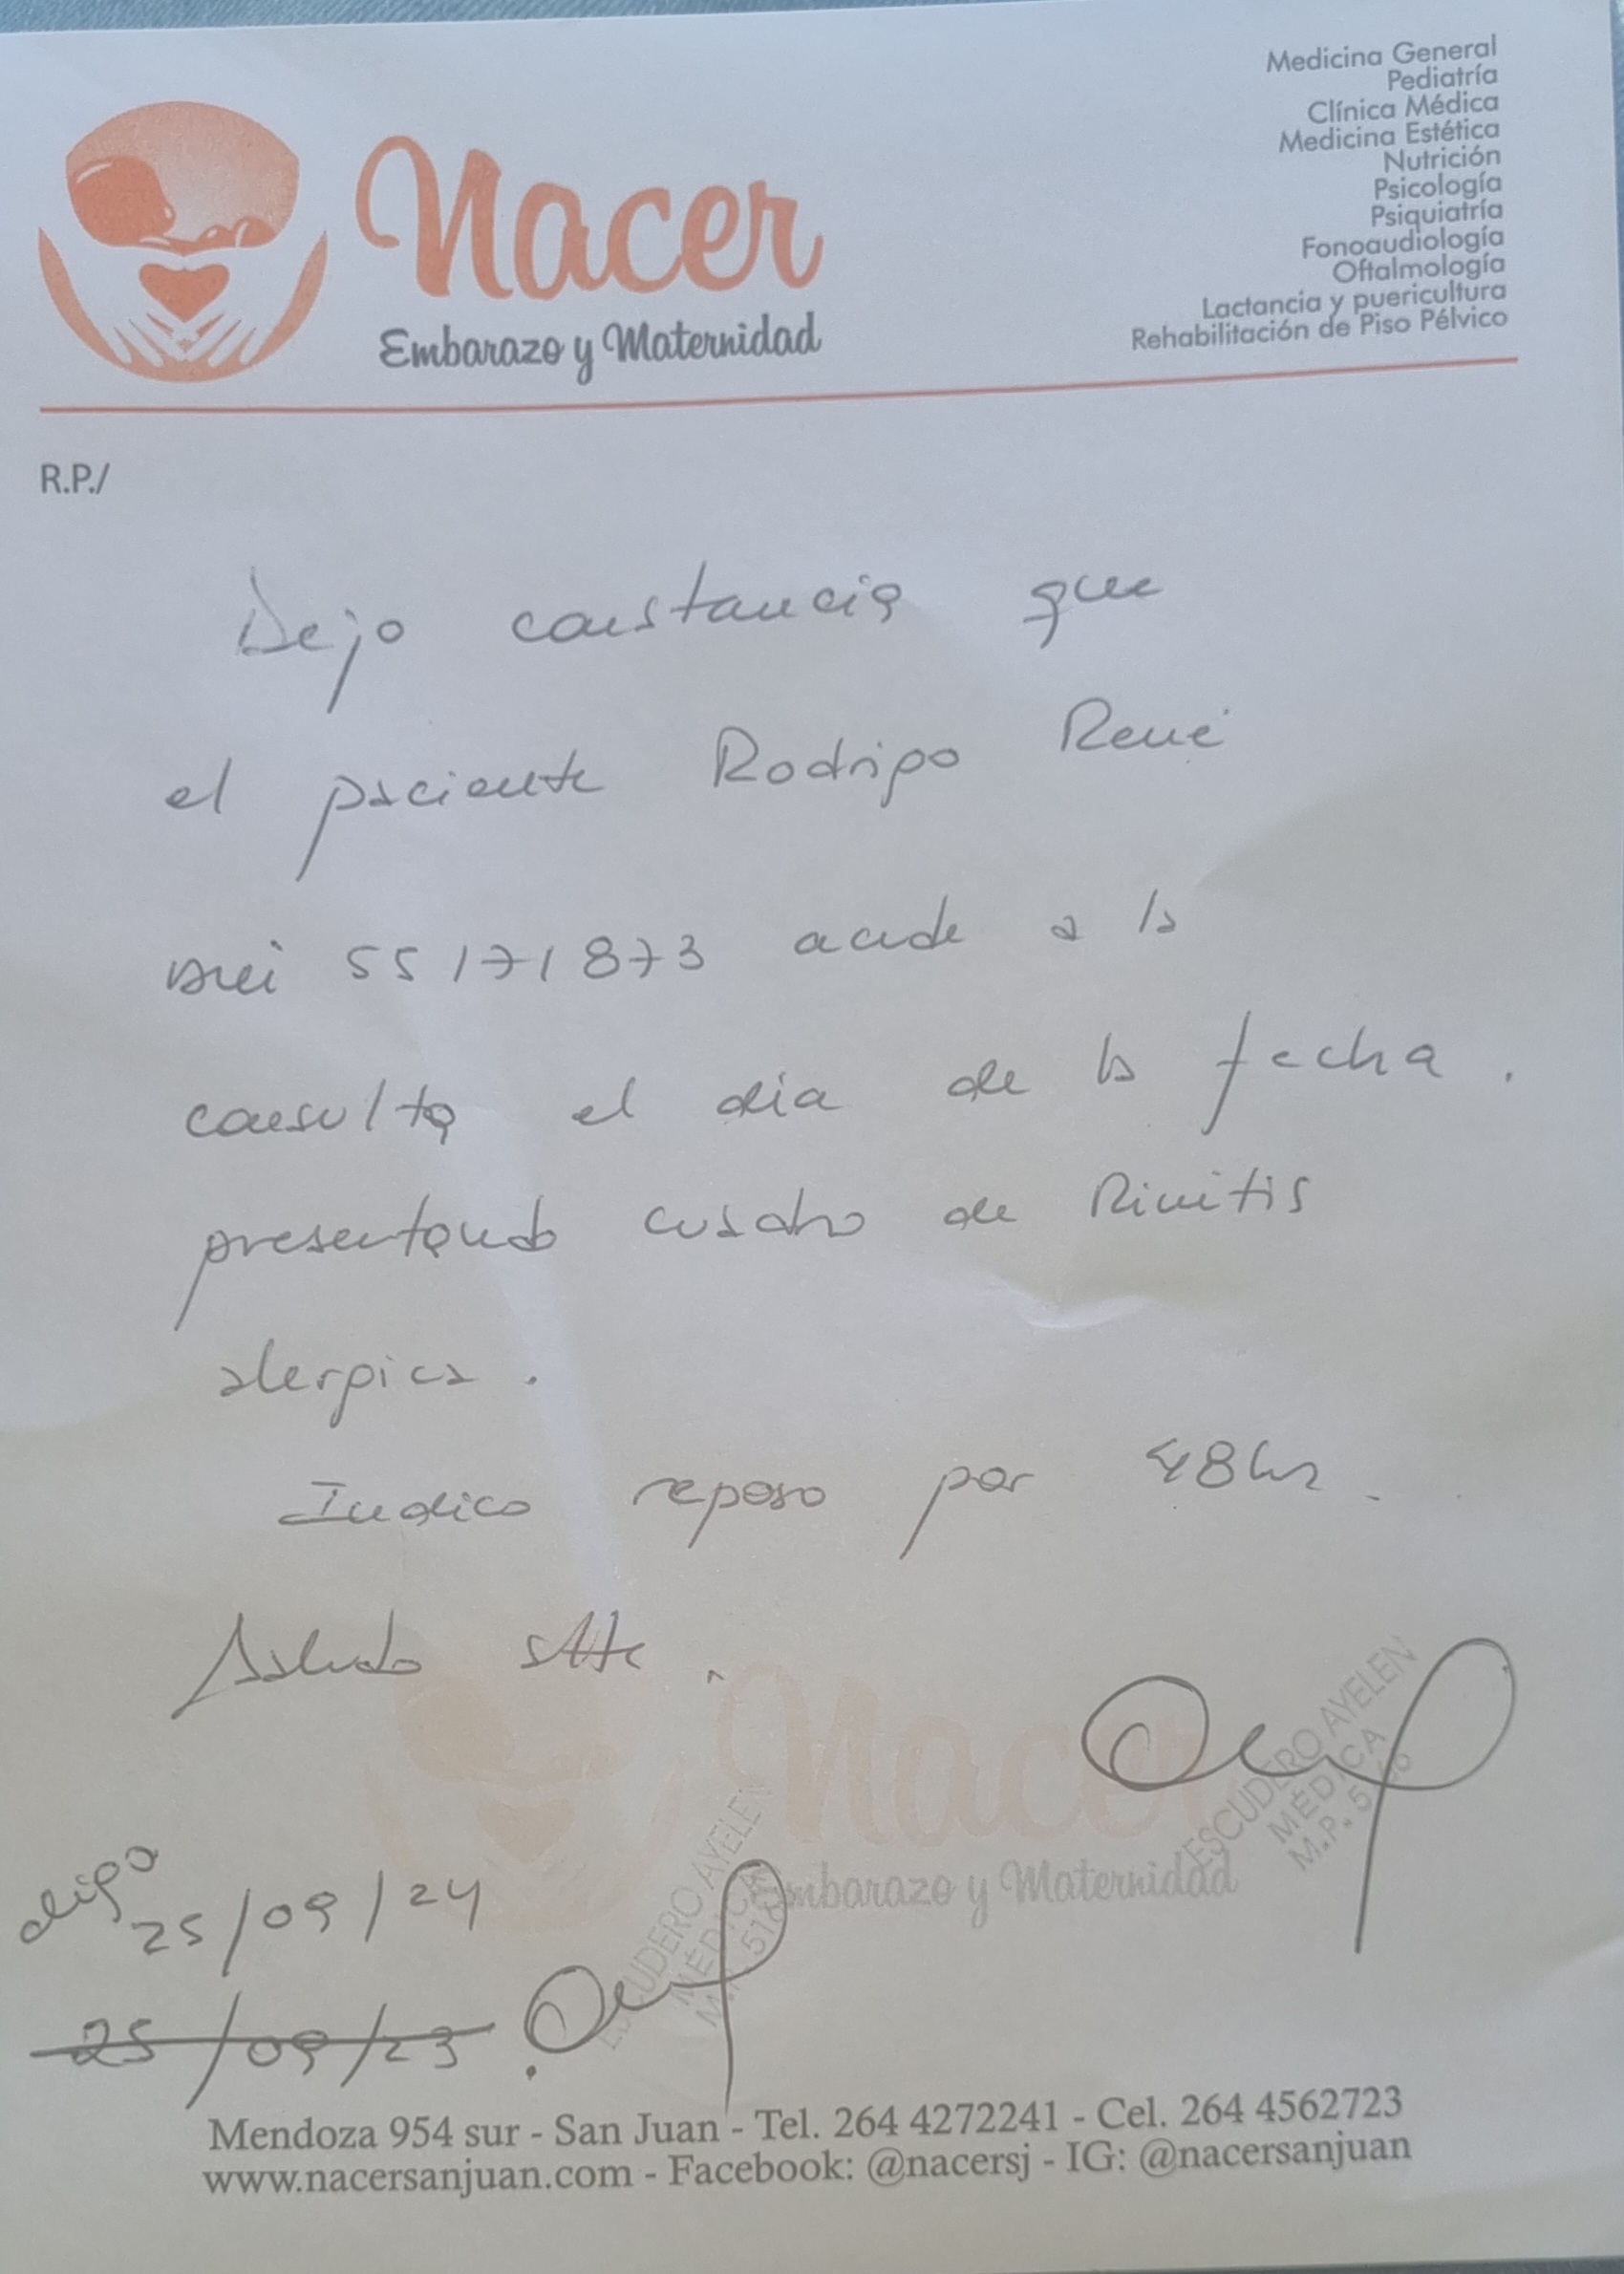 Nacer
Embarazo y Maternidad
Medicina General
Pediatría
Clínica Médica
Medicina Estética
Nutrición
Psicología
Psiquiatría
Fonoaudiología
Oftalmología
Lactancia y puericultura
Rehabilitación de Piso Pélvico
R.P./
Dejo constancia que
el paciente Rodrigo René
DNI 55171873 acude a la
consulta el día de la fecha.
presentando cuadro de Rinitis
alergica.
Indico reposo por 48hs.
Saludo atte.
Nacer
Embarazo y Maternidad
ESCUDERO AYELEN
MÉDICA
M.P.
digo
25/09/24
25/09/23
ESCUDERO AYELEN
MÉDICA
Mendoza 954 sur - San Juan - Tel. 264 4272241 - Cel. 264 4562723
www.nacersanjuan.com - Facebook: @nacersj - IG: @nacersanjuan